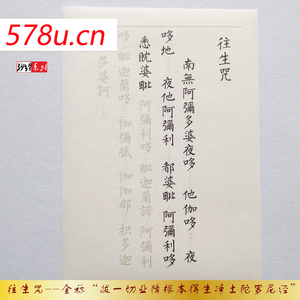 578u.cn
往生咒
南無阿彌多婆夜哆 他伽哆 夜
哆地 夜他阿彌利 都婆毗 阿彌利哆
悉眈婆毗 阿彌利哆 毗迦蘭諦 阿彌利
哆 毗迦蘭哆 伽彌膩 伽伽那 枳多迦
莎婆訶
往生咒——全称“拔一切业障根本得生净土陀罗尼经”